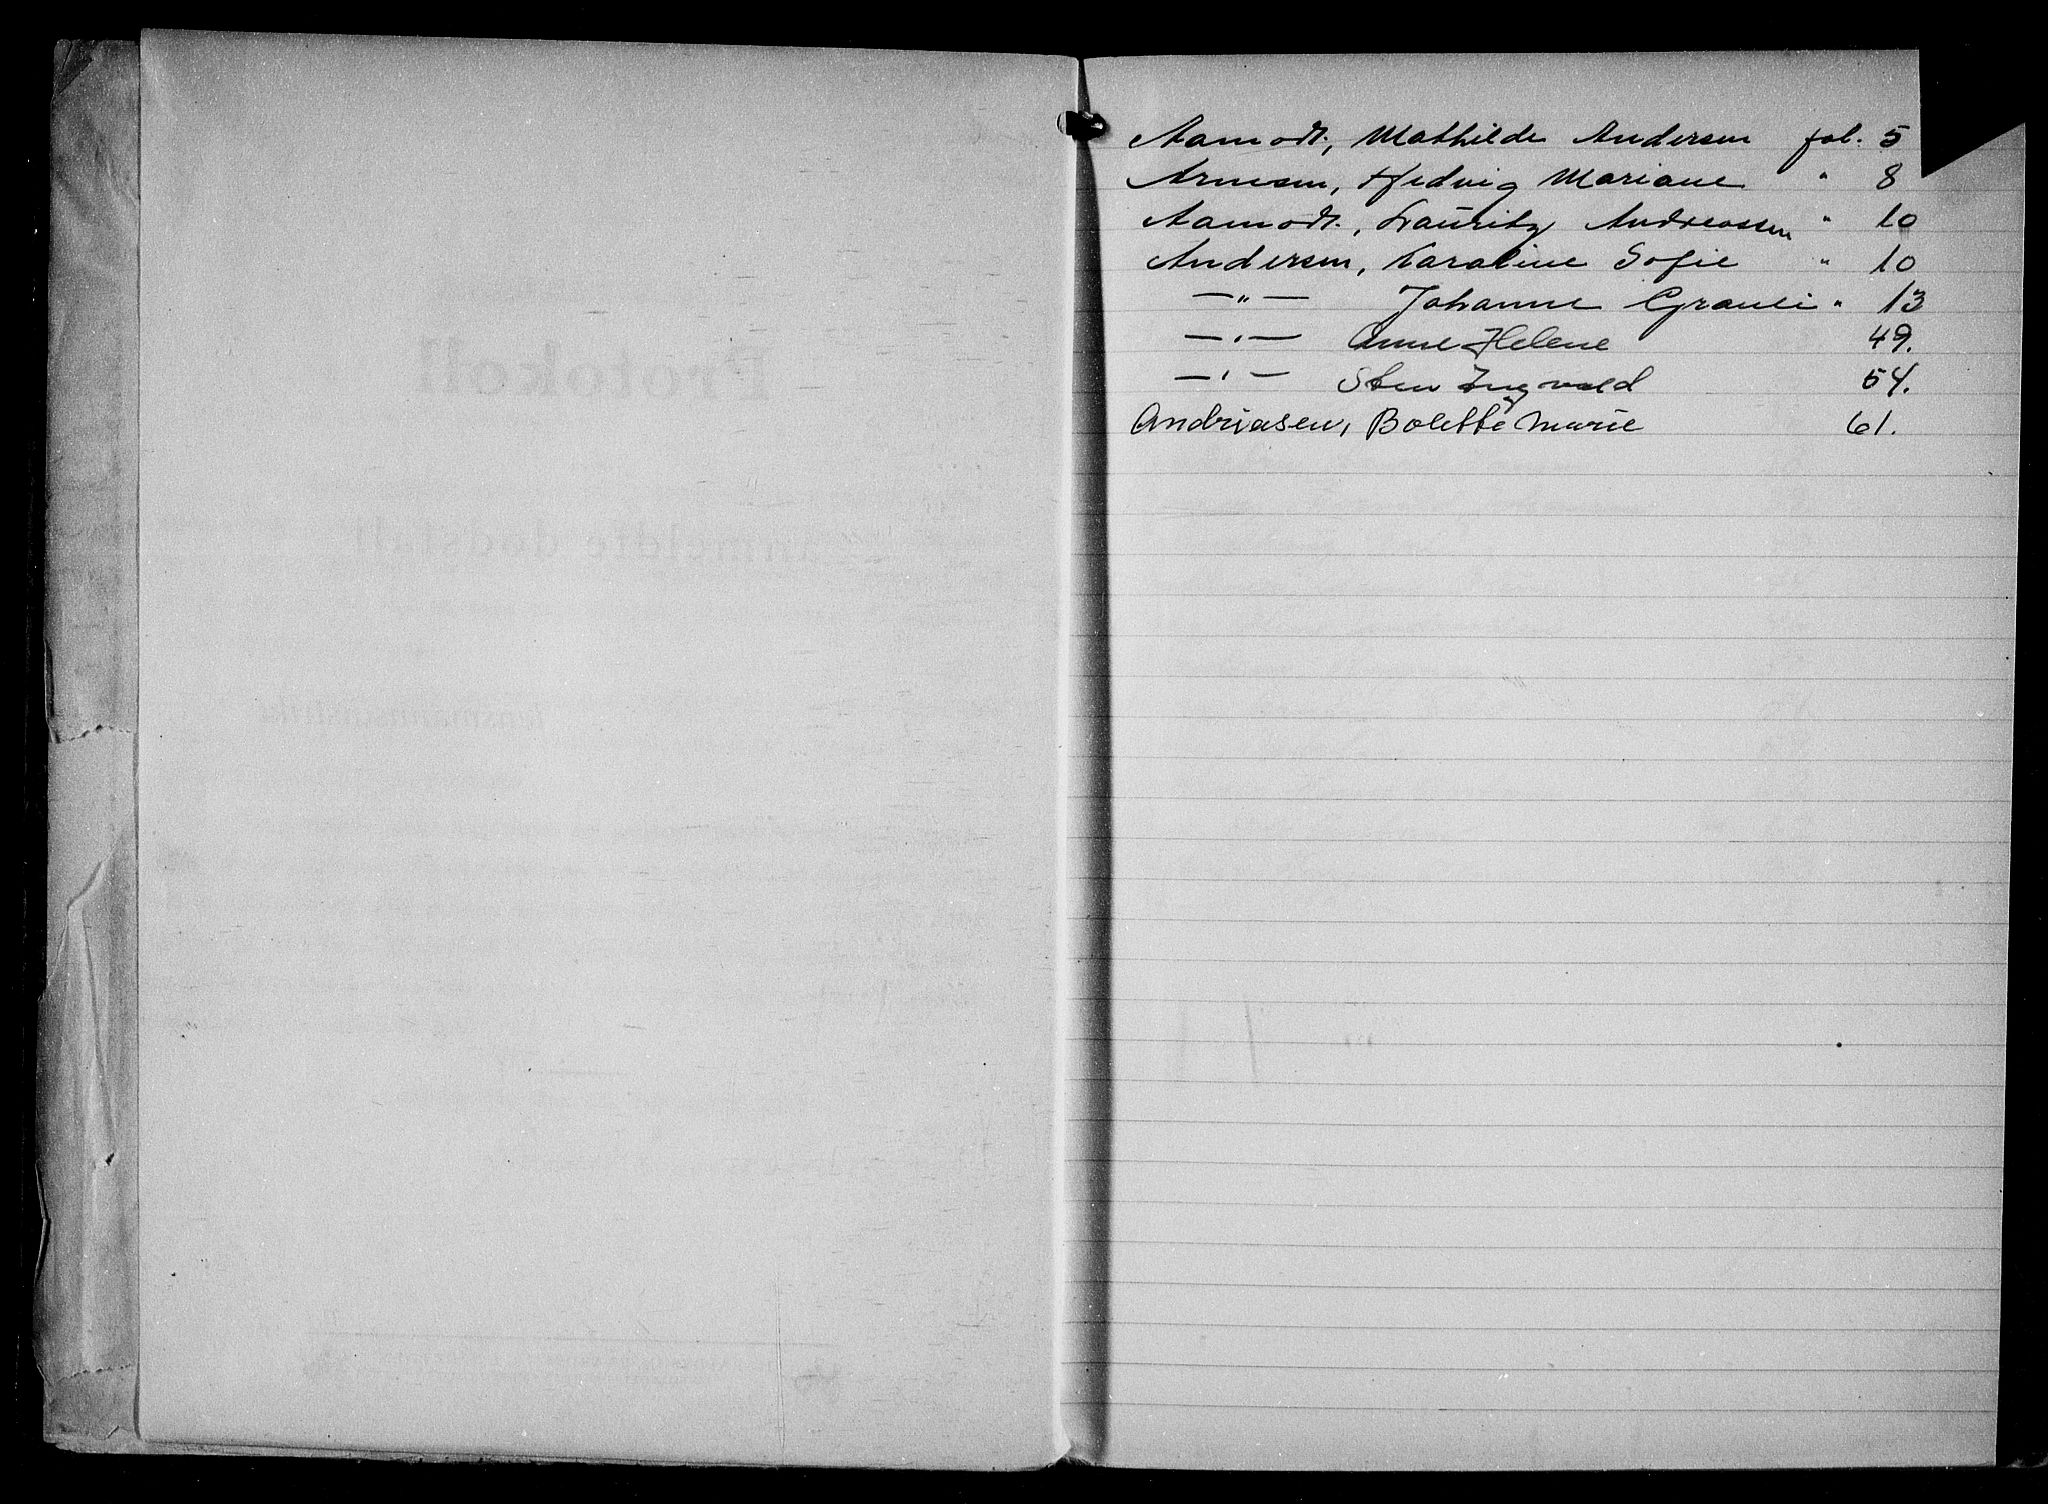 Aamodt, Mathilde Andersen fol. 5
Arnesen, Hedvig Mariane " 8
Aamodt, Lauritz Andreassen " 10
Andersen, Karoline Sofie " 10
—"— Johanne Grauli " 13
—"— Anne Helene 49.
—"— Sten Ingvald 54.
Andriasen, Bolette Marie 61.
Protokoll
anmeldte dødsfall
lensmannsdistrikt